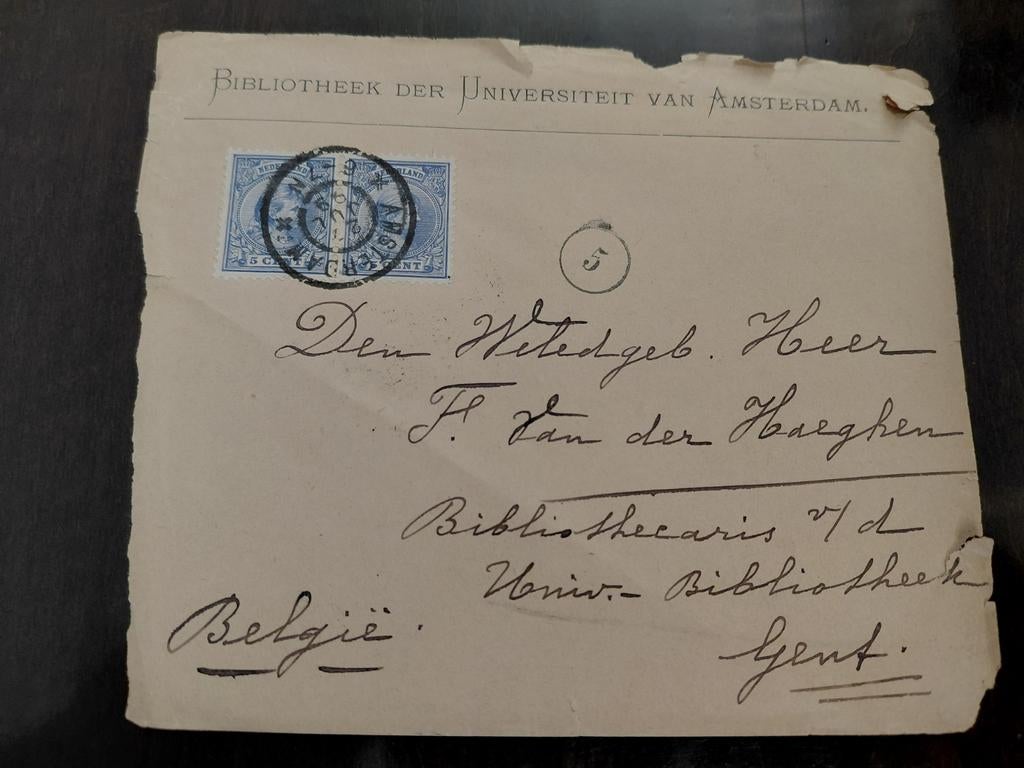 BIBLIOTHEEK DER UNIVERSITEIT VAN AMSTERDAM.
NEDERLAND
5 CENT
5 CENT
AMSTERDAM
5
Den Weledgeb. Heer
F. Van der Haeghen
Bibliothecaris v/d
Univ.- Bibliotheek
Gent.
België.